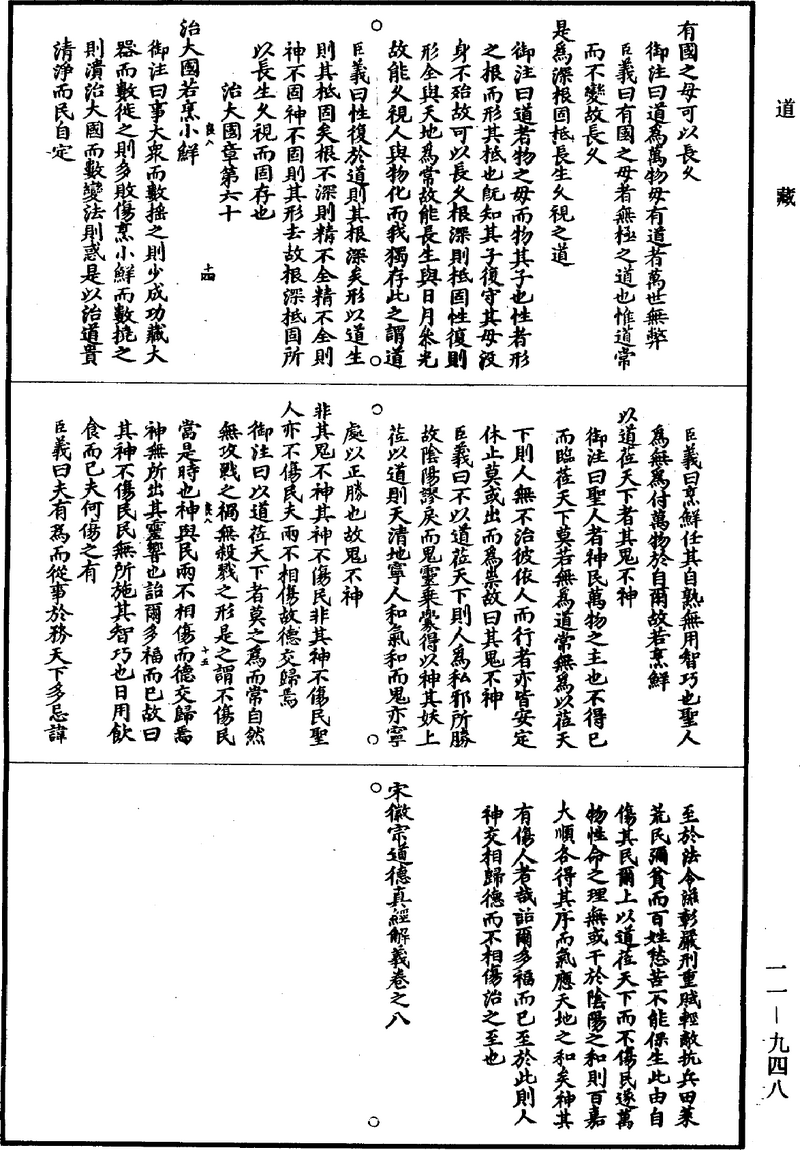 道藏
有國之母可以長久
御注曰道為萬物母有道者萬世無弊
臣義曰有國之母者無極之道也惟道常
而不變故長久
是為深根固柢長生久視之道
御注曰道者物之母而物其子也性者形
之根而形其柢也既知其子復守其母沒
身不殆故可以長久根深則柢固性復則
形全與天地為常故能長生與日月參光
故能久視人與物化而我獨存此之謂道
臣義曰性復於道則其根深矣形以道生
則其柢固矣根不深則精不全精不全則
神不固神不固則其形去故根深柢固所
以長生久視而固存也
治大國章第六十
良八
十四
治大國若烹小鮮
御注曰事大衆而數搖之則少成功藏大
器而數徙之則多敗傷烹小鮮而數撓之
則潰治大國而數變法則惑是以治道貴
清淨而民自定
臣義曰烹鮮任其自熟無用智巧也聖人
為無為付萬物於自爾故若烹鮮
以道莅天下者其鬼不神
御注曰聖人者神民萬物之主也不得已
而臨莅天下莫若無為道常無為以莅天
下則人無不治彼依人而行者亦皆安定
休止莫或出而為祟故曰其鬼不神
臣義曰不以道莅天下則人為私邪所勝
故陰陽謬戾而鬼靈乘釁得以神其妖上
莅以道則天清地寧人和氣和而鬼亦寧
處以正勝也故鬼不神
非其鬼不神其神不傷民非其神不傷民聖
人亦不傷民夫兩不相傷故德交歸焉
御注曰以道莅天下者莫之為而常自然
無攻戰之禍無殺戮之形是之謂不傷民
良八
十五
當是時也神與民兩不相傷而德交歸焉
神無所出其靈響也詒爾多福而已故曰
其神不傷民民無所施其智巧也日用飲
食而已夫何傷之有
臣義曰夫有為而從事於務天下多忌諱
至於法令滋彰嚴刑重賦輕敵抗兵田萊
荒民彌貧而百姓愁苦不能保生此由自
傷其民爾上以道莅天下而不傷民遂萬
物性命之理無或干於陰陽之和則百嘉
大順各得其序而氣應天地之和矣神其
有傷人者哉詒爾多福而已至於此則人
神交相歸德而不相傷治之至也
宋徽宗道德真經解義卷之八
一一—九四八